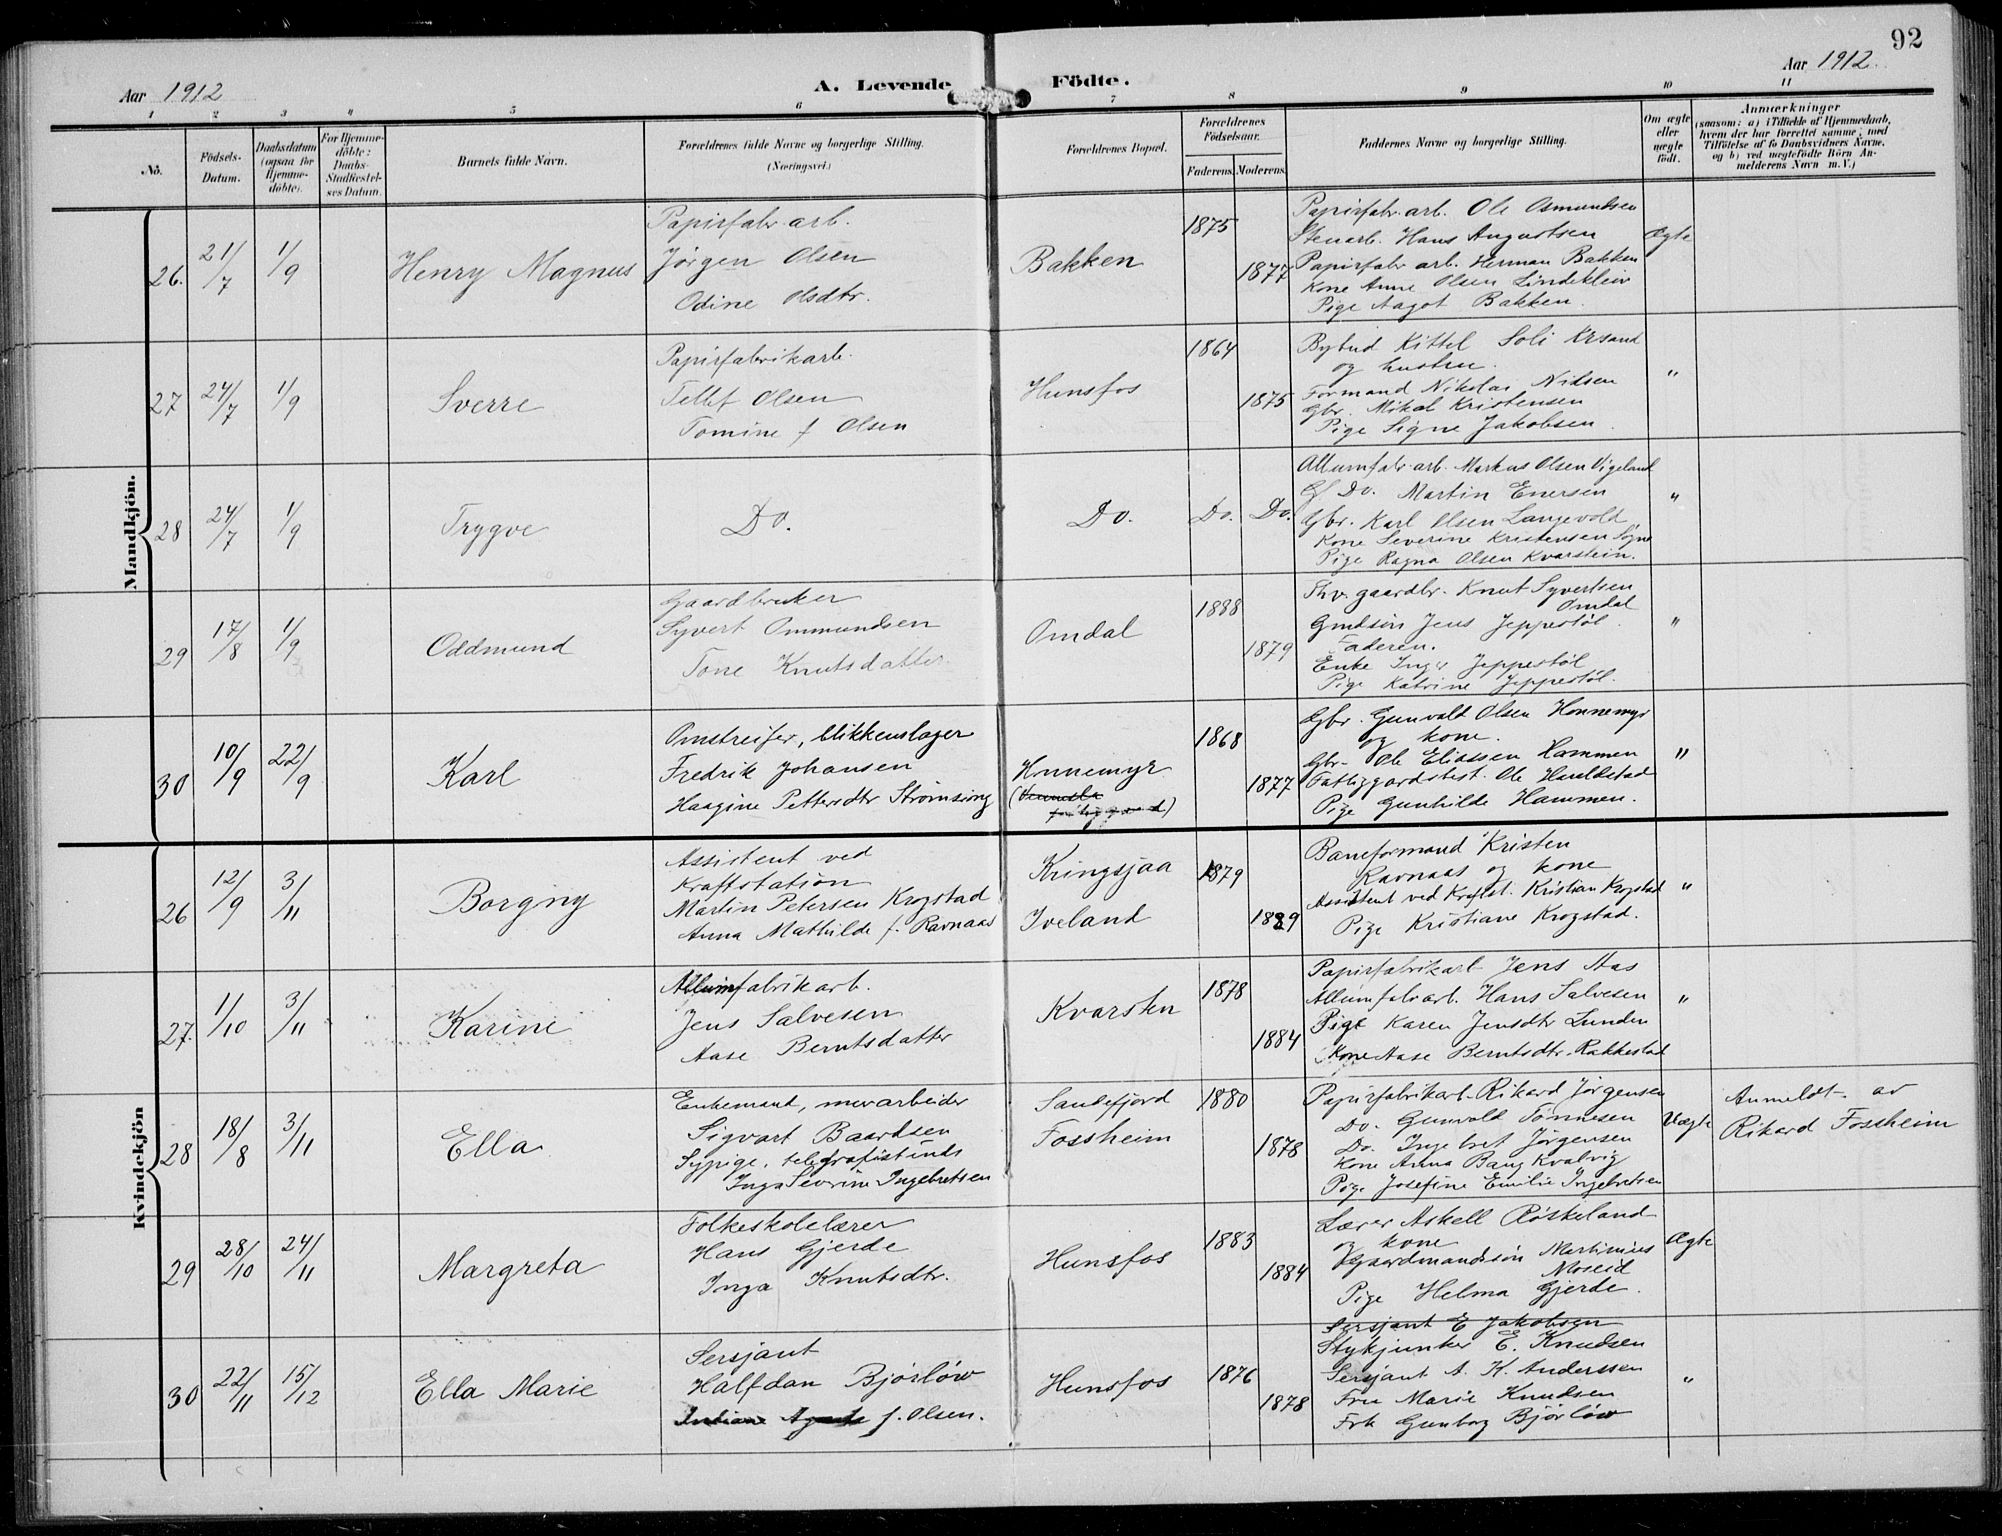 92
Aar 1912
A. Levende Födte.
Aar 1912.
1 2 3 4 5 6 7 8 9 10 11
No.
Födsels-Datum.
Daabsdatum (ogsaa for Hjemme-döbte).
For Hjemme-döbte: Daabs-Stadfæstel-ses Datum.
Barnets fulde Navn.
Forældrenes fulde Navne og borgerlige Stilling.
(Næringsvei.)
Forældrenes Bopæl.
Forældrenes Födselsaar.
Faderens. Moderens.
Faddernes Navne og borgerlige Stilling.
Om ægte eller uægte födt.
Anmærkninger
(saasom: a) i Tilfælde af Hjemmedaab, hvem der har forrettet samme, med Tilföielse af to Daabsvidners Navne, og b) ved uægtefödte Börn Anmelderens Navn m. V.)
Mandkjön.
26. 21/7 1/9 Henry Magnus
Papirfabr. arb.
Jørgen Olsen
Odine Olsdtr.
Bakken
1875
1877
Papirfabr. arb. Ole Osmundsen
Stenarb. Hans Augustsen
Papirfabr arb. Herman Bakken
Kone Anne Olsen Lindekleiv
Pige Aagot Bakken.
Ægte
27 24/7 1/9 Sverre
Papirfabrikarb.
Tellef Olsen
Tomine f Olsen
Hunsfos
1864
1875
Bybud Kittel Soli Krsand
og hustru.
Formand Nikolai Nilsen
Gbr. Mikal Kristensen
Pige Signe Jakobsen.
"
28 24/7 1/9 Trygve
Do.
Do.
Do. Do.
Allumfabr. arb. Markus Olsen Vigeland
Do. Martin Enersen
Gbr. Karl Olsen Langevold
Kone Severine Kristensen Søgne
Pige Ragna Olsen Kvarstein.
"
29 17/8 1/9 Oddmund
Gaardbruker
Syvert Ommundsen
Tone Knutsdatter.
Omdal
1888
1879
Fhv. gaardbr. Knut Syvertsen
Omdal
Gmdsøn Jens Jeppestøl.
Faderen.
Enke Inger Jeppestøl
Pige Katrine Jeppestøl.
"
30 10/9 22/9 Karl
Omstreifer, blikkenslager
Fredrik Johansen
Haagine Pettersdtr Strømsing
Honnemyr
(Vennesla
fattiggaard)
1868
1877
Gbr. Gunvald Olsen Honnemyr
og kone.
Gbr. Ole Eliassen Hammen
Fattiggardsbest. Ole
Pige Gunhilde Hammen.
"
Kvindekjön
26 12/9 3/11 Borgny
Assistent ved
Kraftstation
Martin Petersen Krogstad
Anna Mathilde f. Ravnaas
Kringsjaa
Iveland
1879
1889
Baneformand Kristen
Ravnaas og kone
Assistent ved Kraftst. Kristian Krogstad
Pige Kristiane Krogstad.
"
27. 1/10 3/11 Karine
Allumfabrikarb.
Jens Salvesen
Aase Berntsdatter
Kvarsten
1878
1884
Papirfabrikarb Jens Aas
Allumfabr arb. Hans Salvesen
Pige Karen Jensdtr Lunden
Kone Aase Berntsdtr. Rakkestad
"
28 18/8 3/11 Ella
Enkemand, murarbeider
Sigvart Baardsen
Sypige, telegrafistinde
Inga Sevrine Ingebretsen
Sandefjord
Fossheim
1880
1878
Papirfabrikarb. Rikard Jørgensen
Do. Gunvald Tønnesen
Do. Ingebret Jørgensen
Kone Anna Bang Kvalvig
Pige Josefine Emilie Ingebretsen
Uægte
Anmeldt av
Rikard Fossheim
29 28/10 24/11 Margreta
Folkeskolelærer
Hans Gjerde
Inga Knutsdtr.
Hunsfos
1883
1884
Lærer Askell Røskeland
og kone
Gaardmandssøn Martinius
Moseid
Pige Helma Gjerde.
Ægte
30 22/11 15/12 Ella Marie
Sersjant
Halfdan Bjørløw
f. Olsen.
Hunsfos
1876
1878
Sersjant E Jakobsen
Stykjunker E. Knudsen
Sersjant A. K. Anderssen
Fru Marie Knudsen
Frk Gunborg Bjørløw
"